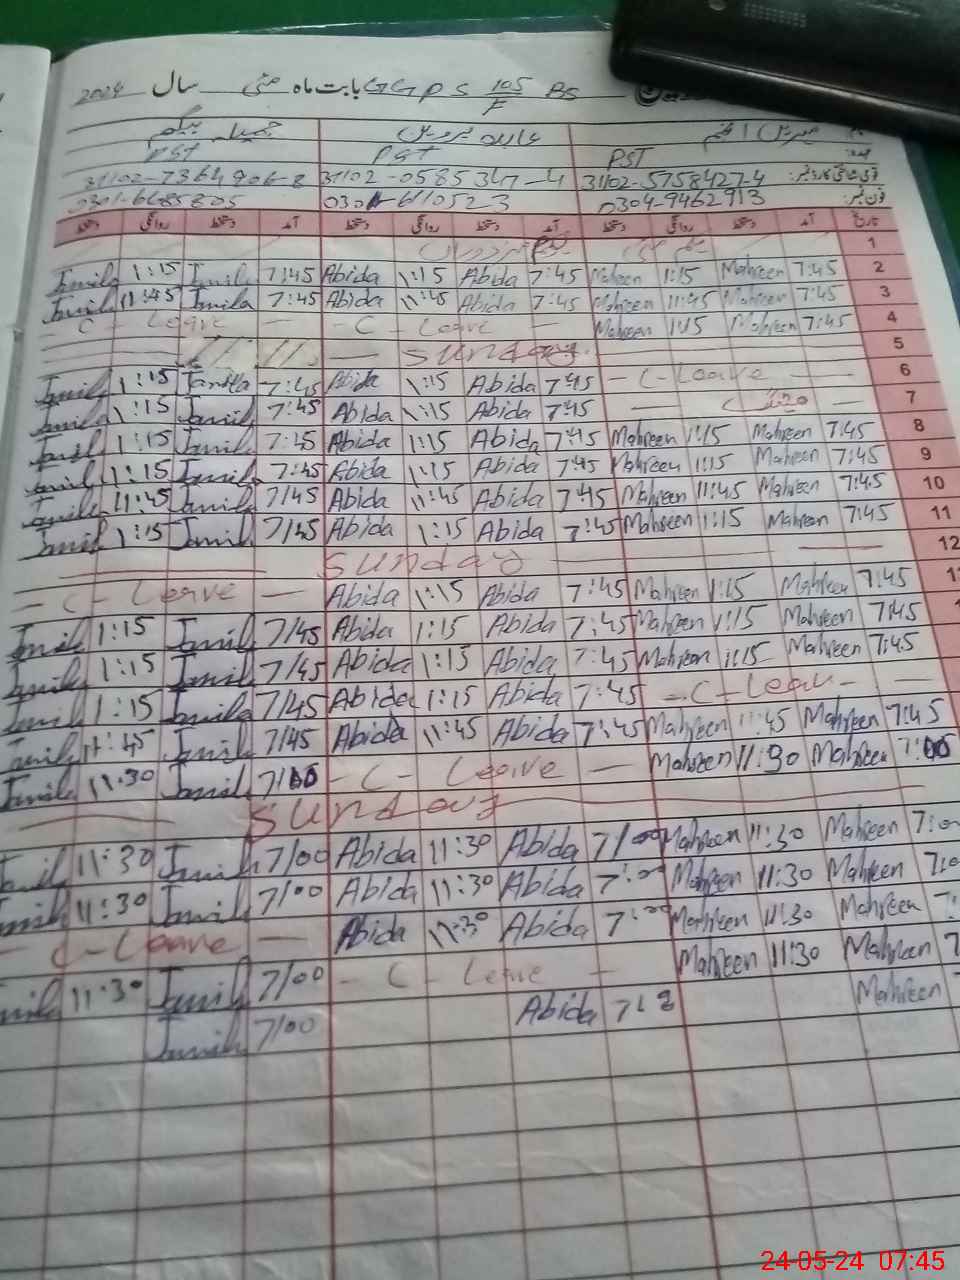 بابت ماہ مئی سال 2024 GGPS 105/F BS
جمیلہ بیگم عابدہ پروین مہرین
PST PST PST
31102-7364906-8 31102-0585347-4 31102-5758427-4
0301-6685805 0304-9462913
دستخط روانگی دستخط آمد دستخط روانگی دستخط آمد دستخط روانگی دستخط آمد تاریخ
1
Jamila 1:15 Jamila 7:45 Abida 1:15 Abida 7:45 Mahreen 1:15 Mahreen 7:45 2
Jamila 11:45 Jamila 7:45 Abida 11:45 Abida 7:45 Mahreen 11:45 Mahreen 7:45 3
C - Leave - - C - Leave - Mahreen 1:15 Mahreen 7:45 4
- Sunday 5
Jamila 1:15 Jamila 7:45 Abida 1:15 Abida 7:45 - C - Leave - 6
Jamila 1:15 Jamila 7:45 Abida 1:15 Abida 7:45 - میٹنگ - 7
Jamila 1:15 Jamila 7:45 Abida 1:15 Abida 7:45 Mahreen 1:15 Mahreen 7:45 8
Jamila 1:15 Jamila 7:45 Abida 1:15 Abida 7:45 Mahreen 1:15 Mahreen 7:45 9
Jamila 11:45 Jamila 7/45 Abida 11:45 Abida 7:45 Mahreen 11:45 Mahreen 7:45 10
Jamila 1:15 Jamila 7/45 Abida 1:15 Abida 7:45 Mahreen 1:15 Mahreen 7:45 11
Sunday 12
- C - Leave - Abida 1:15 Abida 7:45 Mahreen 1:15 Mahreen 7:45
Jamila 1:15 Jamila 7/45 Abida 1:15 Abida 7:45 Mahreen 1:15 Mahreen 7:45
Jamila 1:15 Jamila 7/45 Abida 1:15 Abida 7:45 Mahreen 1:15 Mahreen 7:45
Jamila 1:15 Jamila 7/45 Abida 1:15 Abida 7:45 - C - Leave -
Jamila 11:45 Jamila 7/45 Abida 11:45 Abida 7:45 Mahreen 11:45 Mahreen 7:45
Jamila 11:30 Jamila 7/00 - C - Leave - Mahreen 11:30 Mahreen 7:00
Sunday
Jamila 11:30 Jamila 7/00 Abida 11:30 Abida 7/00 Mahreen 11:30 Mahreen 7:00
Jamila 11:30 Jamila 7/00 Abida 11:30 Abida 7:00 Mahreen 11:30 Mahreen
- C - Leave - Abida 11:30 Abida 7:00 Mahreen 11:30 Mahreen
Jamila 11:30 Jamila 7/00 - C - Leave - Mahreen 11:30 Mahreen
Jamila 7/00 Abida Mahreen
24-05-24 07:45